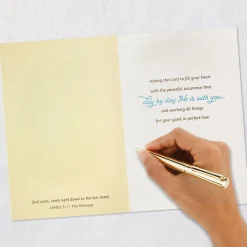 God cares, cares right down to the last detail.
JAMES 5:11 The Message
Asking the Lord to fill your heart
with the peaceful assurance that
day by day He is with you
and working all things
for your good in perfect love.